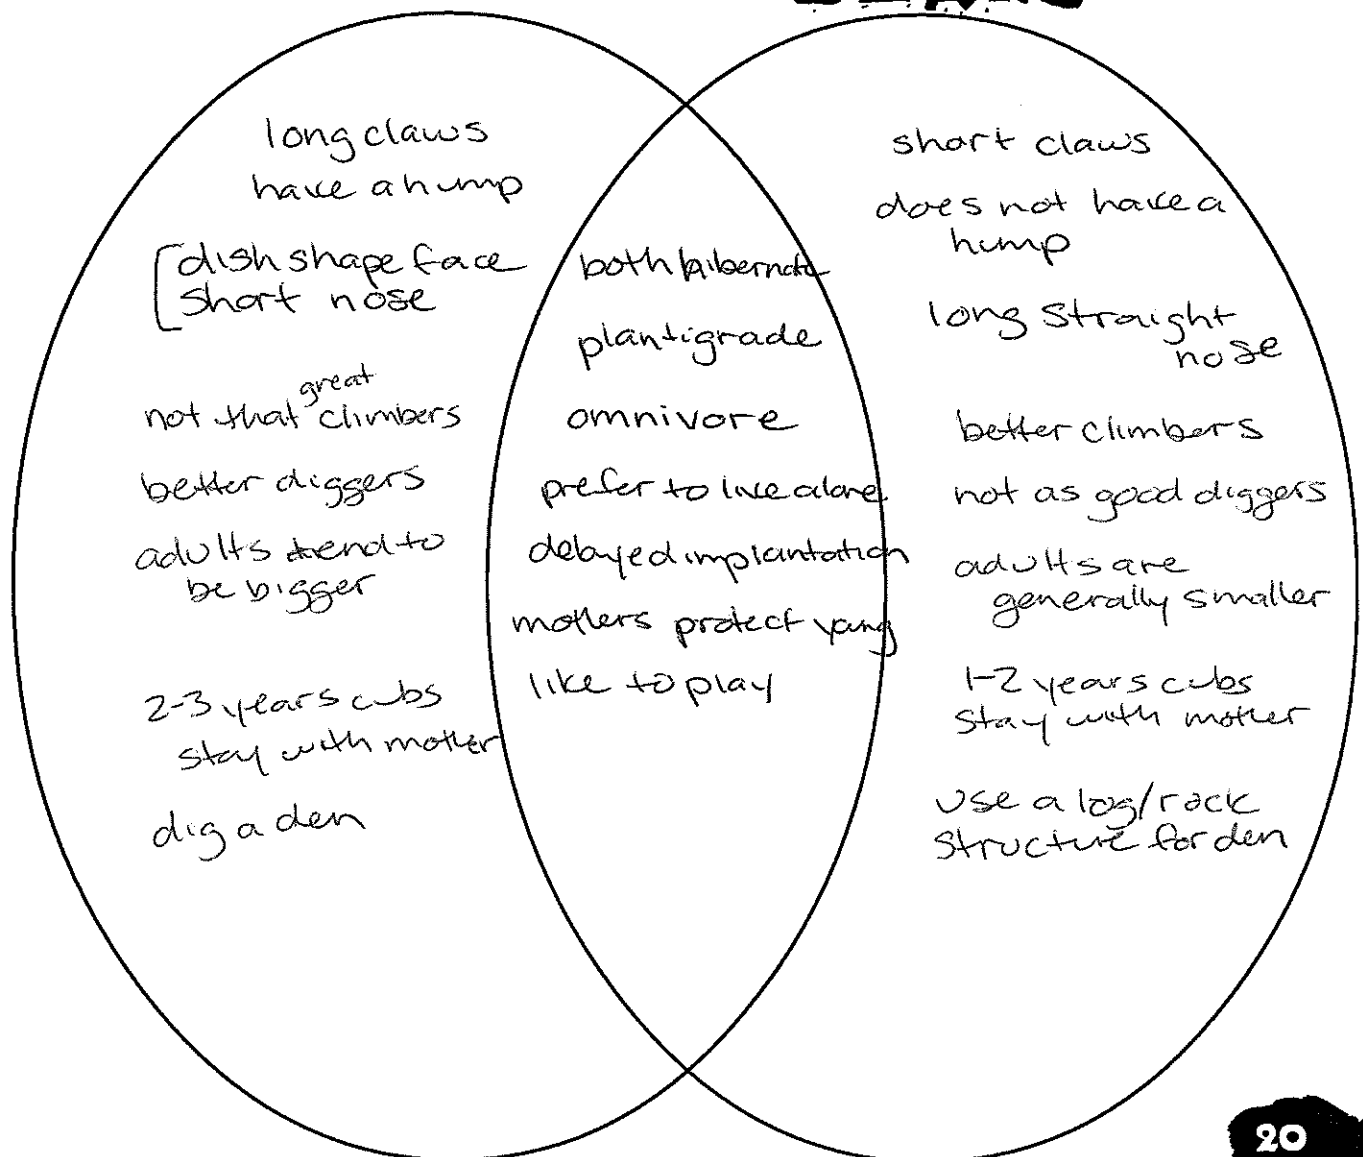 long claws
have a hump
dish shape face
short nose
not that great climbers
better diggers
adults tend to
be bigger
2-3 years cubs
stay with mother
dig a den
both hibernate
plantigrade
omnivore
prefer to live alone
delayed implantation
mothers protect young
like to play
short claws
does not have a
hump
long straight
nose
better climbers
not as good diggers
adults are
generally smaller
1-2 years cubs
stay with mother
use a log/rock
structure for den
20